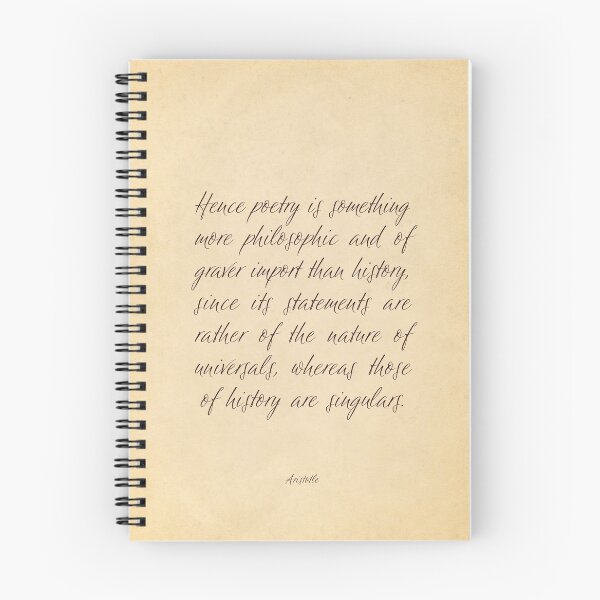 Hence poetry is something
more philosophic and of
graver import than history,
since its statements are
rather of the nature of
universals, whereas those
of history are singulars.
Aristotle